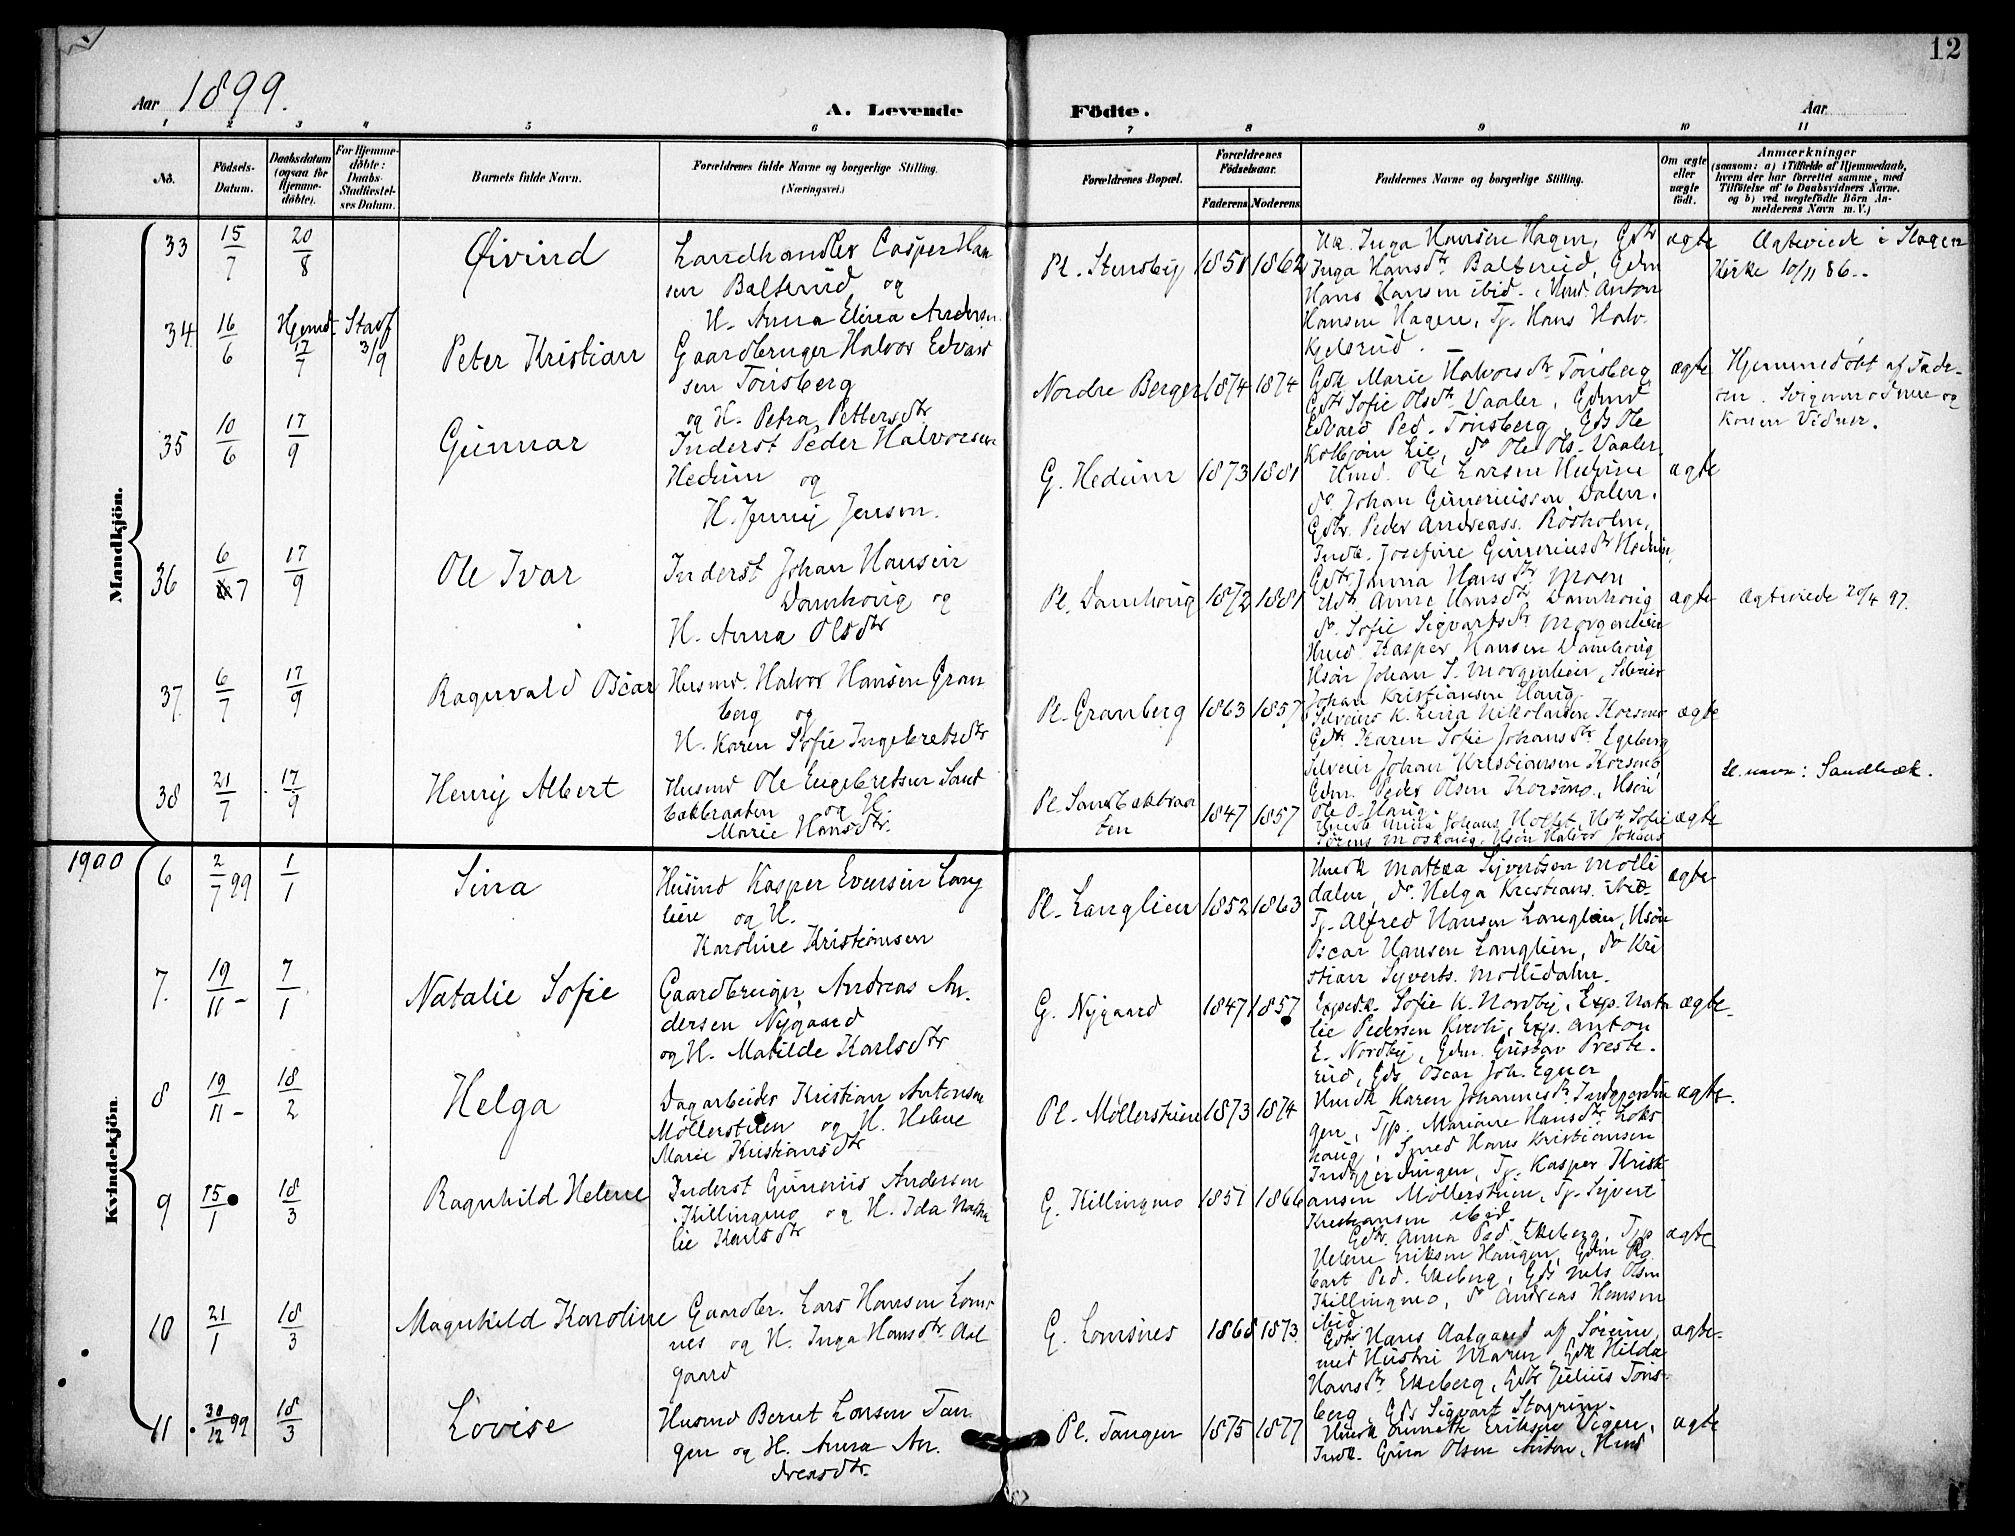 12
Aar 1899.
A. Levende Födte.
Aar
1 2 3 4 5 6 7 8 9 10 11
Nô.
Födsels-
Datum.
Daabsdatum
(ogsaa för
Hjemme-
döbte).
For Hjemme-
döbte:
Daabs-
Stadfæstel-
ses Datum.
Barnets fulde Navn.
Forældrenes fulde Navne og borgerlige Stilling.
(Næringsvei.)
Forældrenes Bopæl.
Forældrenes
Födselsaar.
Faderens Moderens
Faddernes Navne og borgerlige Stilling.
Om ægte
eller
uægte
födt.
Anmærkninger
(saasom: a) i Tilfælde af Hjemmedaab,
hvem der har forrettet samme, med
Tilföielse af to Daabsvidners Navne,
og b) ved uægtefödte Börn An-
melderens Navn m. V.)
Mandkjön.
33 15/7 20/8 Øivind
Landhandler Casper Han
sen Balterud og
H. Anna Elina Andersen
Pl. Stensby 1851 1862
Hk. Inga Hansen Hagen, Gdtr
Inga Hansdtr Balterud, Gdm
Hans Hansen ibid., Hmd. Anton
Hansen Hagen, Tj. Hans Halv.
Kjelsrud.
ægte
Ægteviede i Slagen
Kirke 10/11 86.
34 16/6 Hjemd. 17/7 Stadf 3/9 Peter Kristian
Gaardbruger Halvor Edvard
sen Tönsberg
og H. Petra Pettersdtr
Nordre Berger 1874 1874
Gdk Marie Halvorsdtr Tönsberg,
Gdtr Sofie Olsdtr Vaaler, Gdmd
Edvard Ped. Tönsberg, Gds Ole
Kolbjörn Lie, do Ole Ols. Vaaler
ægte
Hjemmedöbt af Fade-
ren. Svigermoderen og
Konen Vidner.
35 10/6 17/9 Gunnar
Inderst Peder Halvorsen
Hedum og
H. Jenny Jensen.
G. Hedum 1873 1881
Hmd. Ole Larsen Hedum
do Johan Guneriussen Dalen.
Gdbr. Peder Andreass. Rösholm,
Indk. Josefine Guneriusdtr Hedum,
Gdtr Janna Hansdtr Moen
ægte
36 6/7 17/9 Ole Ivar
Inderst Johan Hansen
Damhoug og
H. Anna Olsdtr
Pl. Damhoug 1872 1881
Hdtr. Anne Hansdtr Damhoug
do. Sofie Sigvartsdtr Morgenlien
Hmd. Kasper Hansen Damhoug
Hsön Johan S. Morgenlien, Selveier
Johan Kristiansen Haug.
ægte
Ægteviede 20/4 97.
37. 6/7 17/9 Ragnvald Oscar
Husmd. Halvor Hansen Gran
berg og
H. Karen Sofie Ingebretsdtr
Pl. Granberg 1863 1857
Selveiers K. Lina Nikolaisen Korsmo
Gdtr Karen Sofie Johansdtr Egeberg
Selveier Johan Kristiansen Korsmo,
Gdm. Peder Olsen Korsmo, Hsön
Ole O. Haug.
ægte
38 21/7 17/9 Henry Albert
Husmd Ole Engebretsen Sand
bækbraaten og H.
Marie Hansdtr.
Pl. Sandbækbraa
ten 1847 1857
ægte
Sl. navn: Sandbæk.
Kvindekjön.
1900
6 2/7 99 1/1 Sina
Husmd Kasper Evensen Lang
lien og H.
Karoline Kristiansen
Pl. Langlien 1852 1863
Hmdk Mattea Syvertsen Molli
dalen, do Helga Kristians. ibid.
Tj. Alfred Hansen Langlien, Hsön
Oscar Hansen Langlien, do Kri
stian Syverts. Mollidalen.
ægte
7. 19/11 - 7/1 Natalie Sofie
Gaardbruger Andreas An.
dersen Nygaard
og H. Matilde Karlsdtr
G. Nygaard 1847 1857
Expedk. Sofie K. Nordby, Exp. Nata
lie Pedersen Kverli, Exp. Anton
E. Nordby, Gdm. Gustav Preste-
rud, Gds Oscar Joh. Egner
ægte-
8 19/11 - 18/2 Helga
Dagarbeider Kristian Antonsen
Möllerstuen og H. Helene
Marie Kristiansdtr
Pl. Møllerstuen 1873 1874
Hmdk Karen Johannesdtr Indgjerdin
gen, Tjp. Mariane Hansdtr Loks
houg, Smed Hans Kristiansen
Indgjerdingen, Tj. Kasper Kristi
ansen Möllerstuen, Tj. Syvert
Kristiansen ibid.
ægte.
9 15/1 18/3 Ragnhild Helene
Inderst Gunerius Andersen
Killingmo og H. Ida Natha
lie Karlsdtr
G. Killingmo 1851 1866
Gdtr. Anna Ped. Ekeberg, Tjp
Helene Eriksen Haugen, Gdm Ag.
bart Ped. Ekeberg, Gds Nels Olsen
Killingmo, do Andreas Hansen
ibid.
ægte
10 21/1 18/3 Magnhild Karoline
Gaardbr. Lars Hansen Loms
nes og H. Inga Hansdtr Aal
gaard
G. Lomsnes 1868 1873.
Gdbr Hans Aalgaard af Sörum,
med Hustru Maren, Gdk Hilda
Hansdtr Ekeberg, Gdbr Julius Töns-
berg, Gds Sigvart Stogrim.
ægte-
11 30/12 99 18/3 Lovise
Husmd Bernt Larsen Tan
gen og H. Anna An.
dreasdtr.
Pl. Tangen 1875 1877
Hmdk Annette Eriksen Vigen,
Indk. Gina Olsen Anton, Hmd
ægte